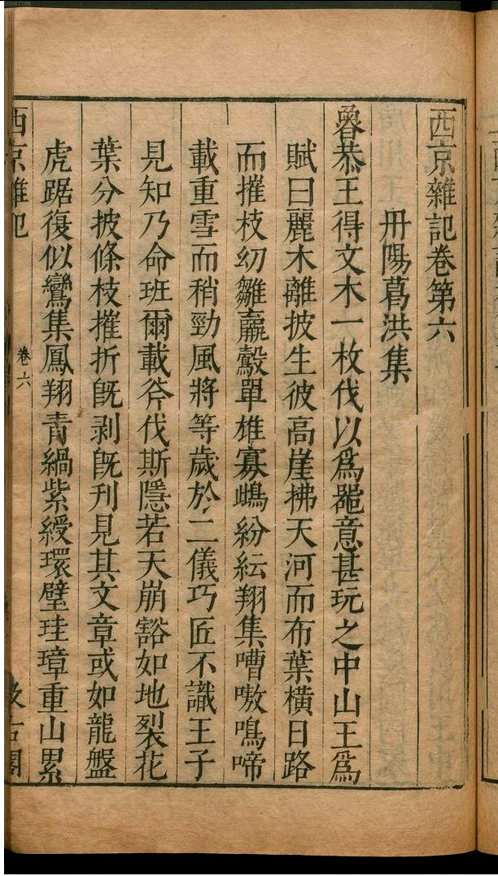 西京雜記卷第六
丹陽葛洪集
魯恭王得文木一枚伐以爲噐意甚玩之中山王爲
賦曰麗木離披生彼高崖拂天河而布葉橫日路
而摧枝幼雛羸鷇單雄寡雌紛紜翔集嘈嗷鳴啼
載重雪而稍勁風將等歲於二儀巧匠不識王子
見知乃命班爾載斧伐斯隱若天崩豁如地裂花
葉分披條枝摧折旣剥旣刋見其文章或如龍盤
虎踞復似鸞集鳳翔青緺紫綬環璧珪璋重山累
西京雜記
卷六
汲古閣